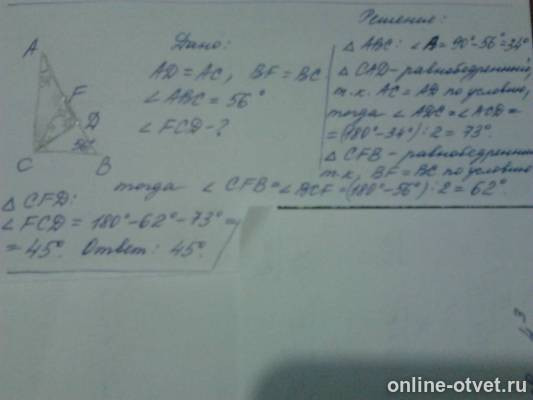 Решение:
Дано:
AD = AC, BF = BC
∠ABC = 56°
∠FCD - ?
A
F
D
56°
C
B
△ ABC: ∠A = 90° - 56° = 34°
△ CAD - равнобедренный,
т.к. AC = AD по условию,
тогда ∠ADC = ∠ACD =
= (180° - 34°) : 2 = 73°.
△ CFB - равнобедренный
т.к. BF = BC по условию
тогда ∠CFB = ∠BCF = (180° - 56°) : 2 = 62°.
△ CFD:
∠FCD = 180° - 62° - 73° =
= 45°. Ответ: 45°.
online-otvet.ru